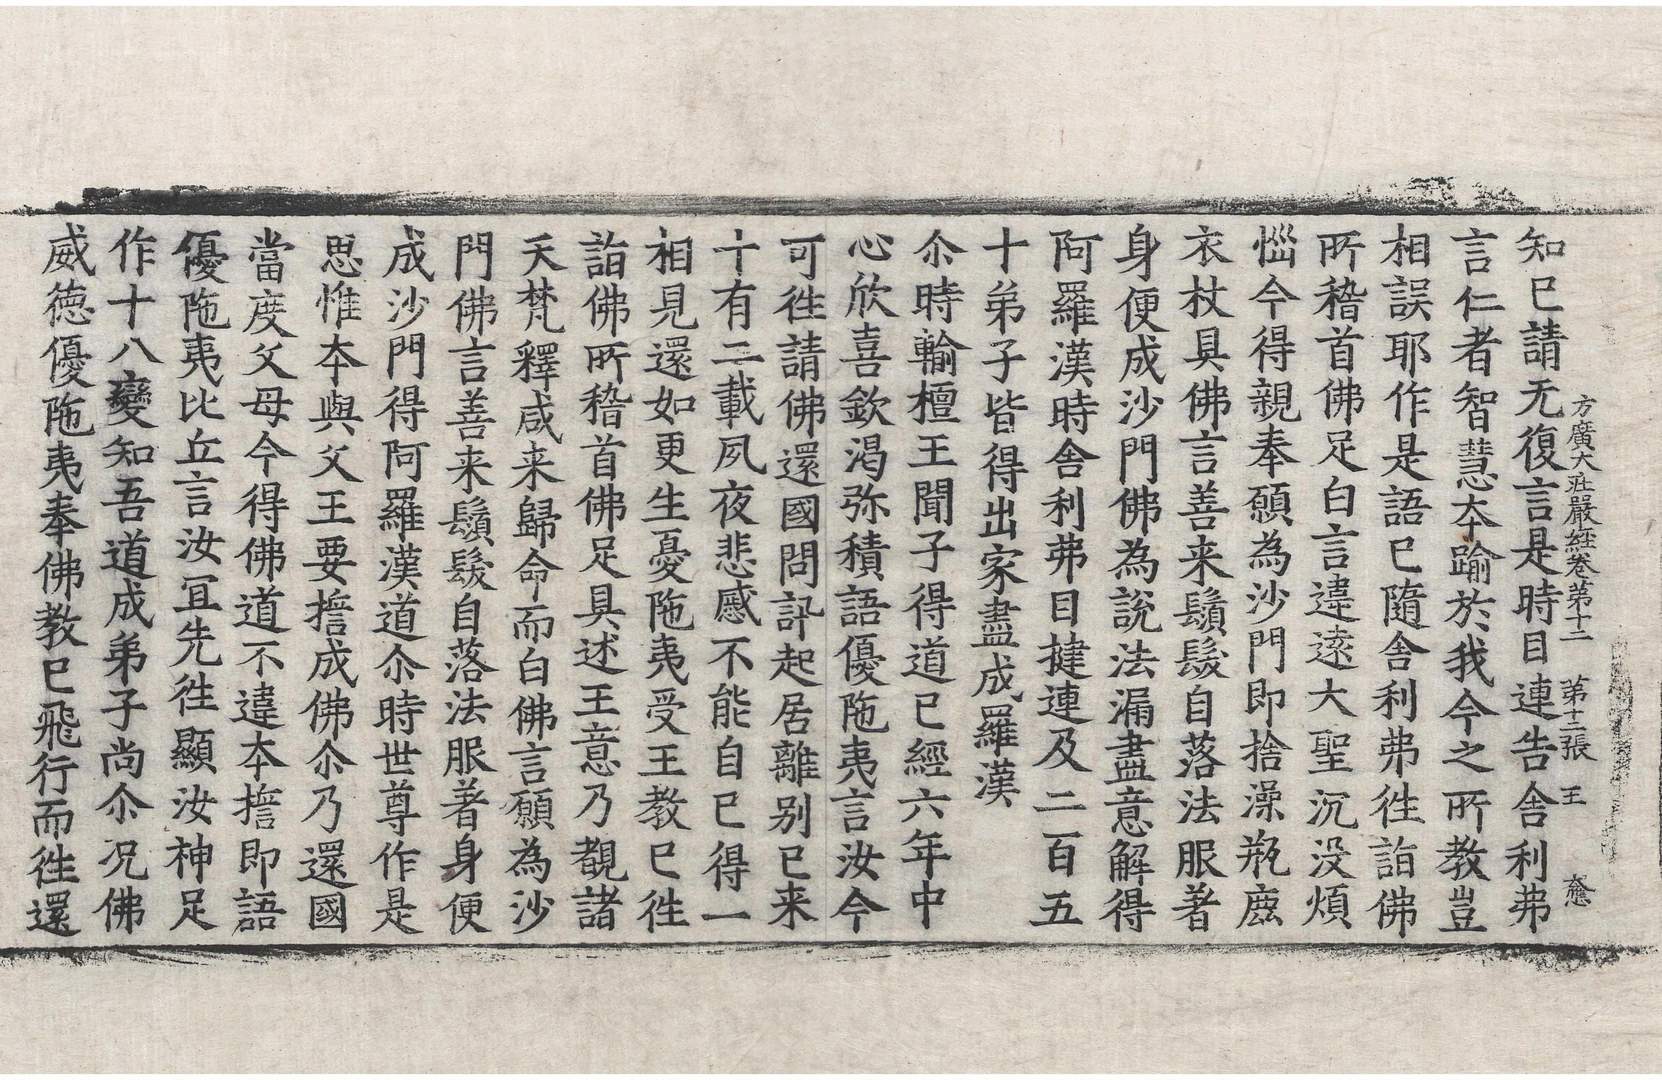 方廣大莊嚴經卷第十二　第十二張　王
知已請无復言是時目連告舍利弗
言仁者智慧本踰於我今之所教豈
相誤耶作是語已隨舍利弗往詣佛
所稽首佛足白言違遠大聖沉没煩
惱今得親奉願為沙門即捨澡瓶鹿
衣杖具佛言善来鬚髮自落法服著
身便成沙門佛為說法漏盡意解得
阿羅漢時舍利弗目揵連及二百五
十弟子皆得出家盡成羅漢
尒時輸檀王聞子得道已經六年中
心欣喜欽渴弥積語優陁夷言汝今
可往請佛還國問訊起居離别已来
十有二載夙夜悲感不能自已得一
相見還如更生憂陁夷受王教已往
詣佛所稽首佛足具述王意乃覩諸
天梵釋咸来歸命而白佛言願為沙
門佛言善来鬚髮自落法服著身便
成沙門得阿羅漢道尒時世尊作是
思惟本與父王要擔成佛尒乃還國
當度父母今得佛道不違本擔即語
優陁夷比丘言汝冝先往顯汝神足
作十八變知吾道成弟子尚尒况佛
威德優陁夷奉佛教已飛行而往還